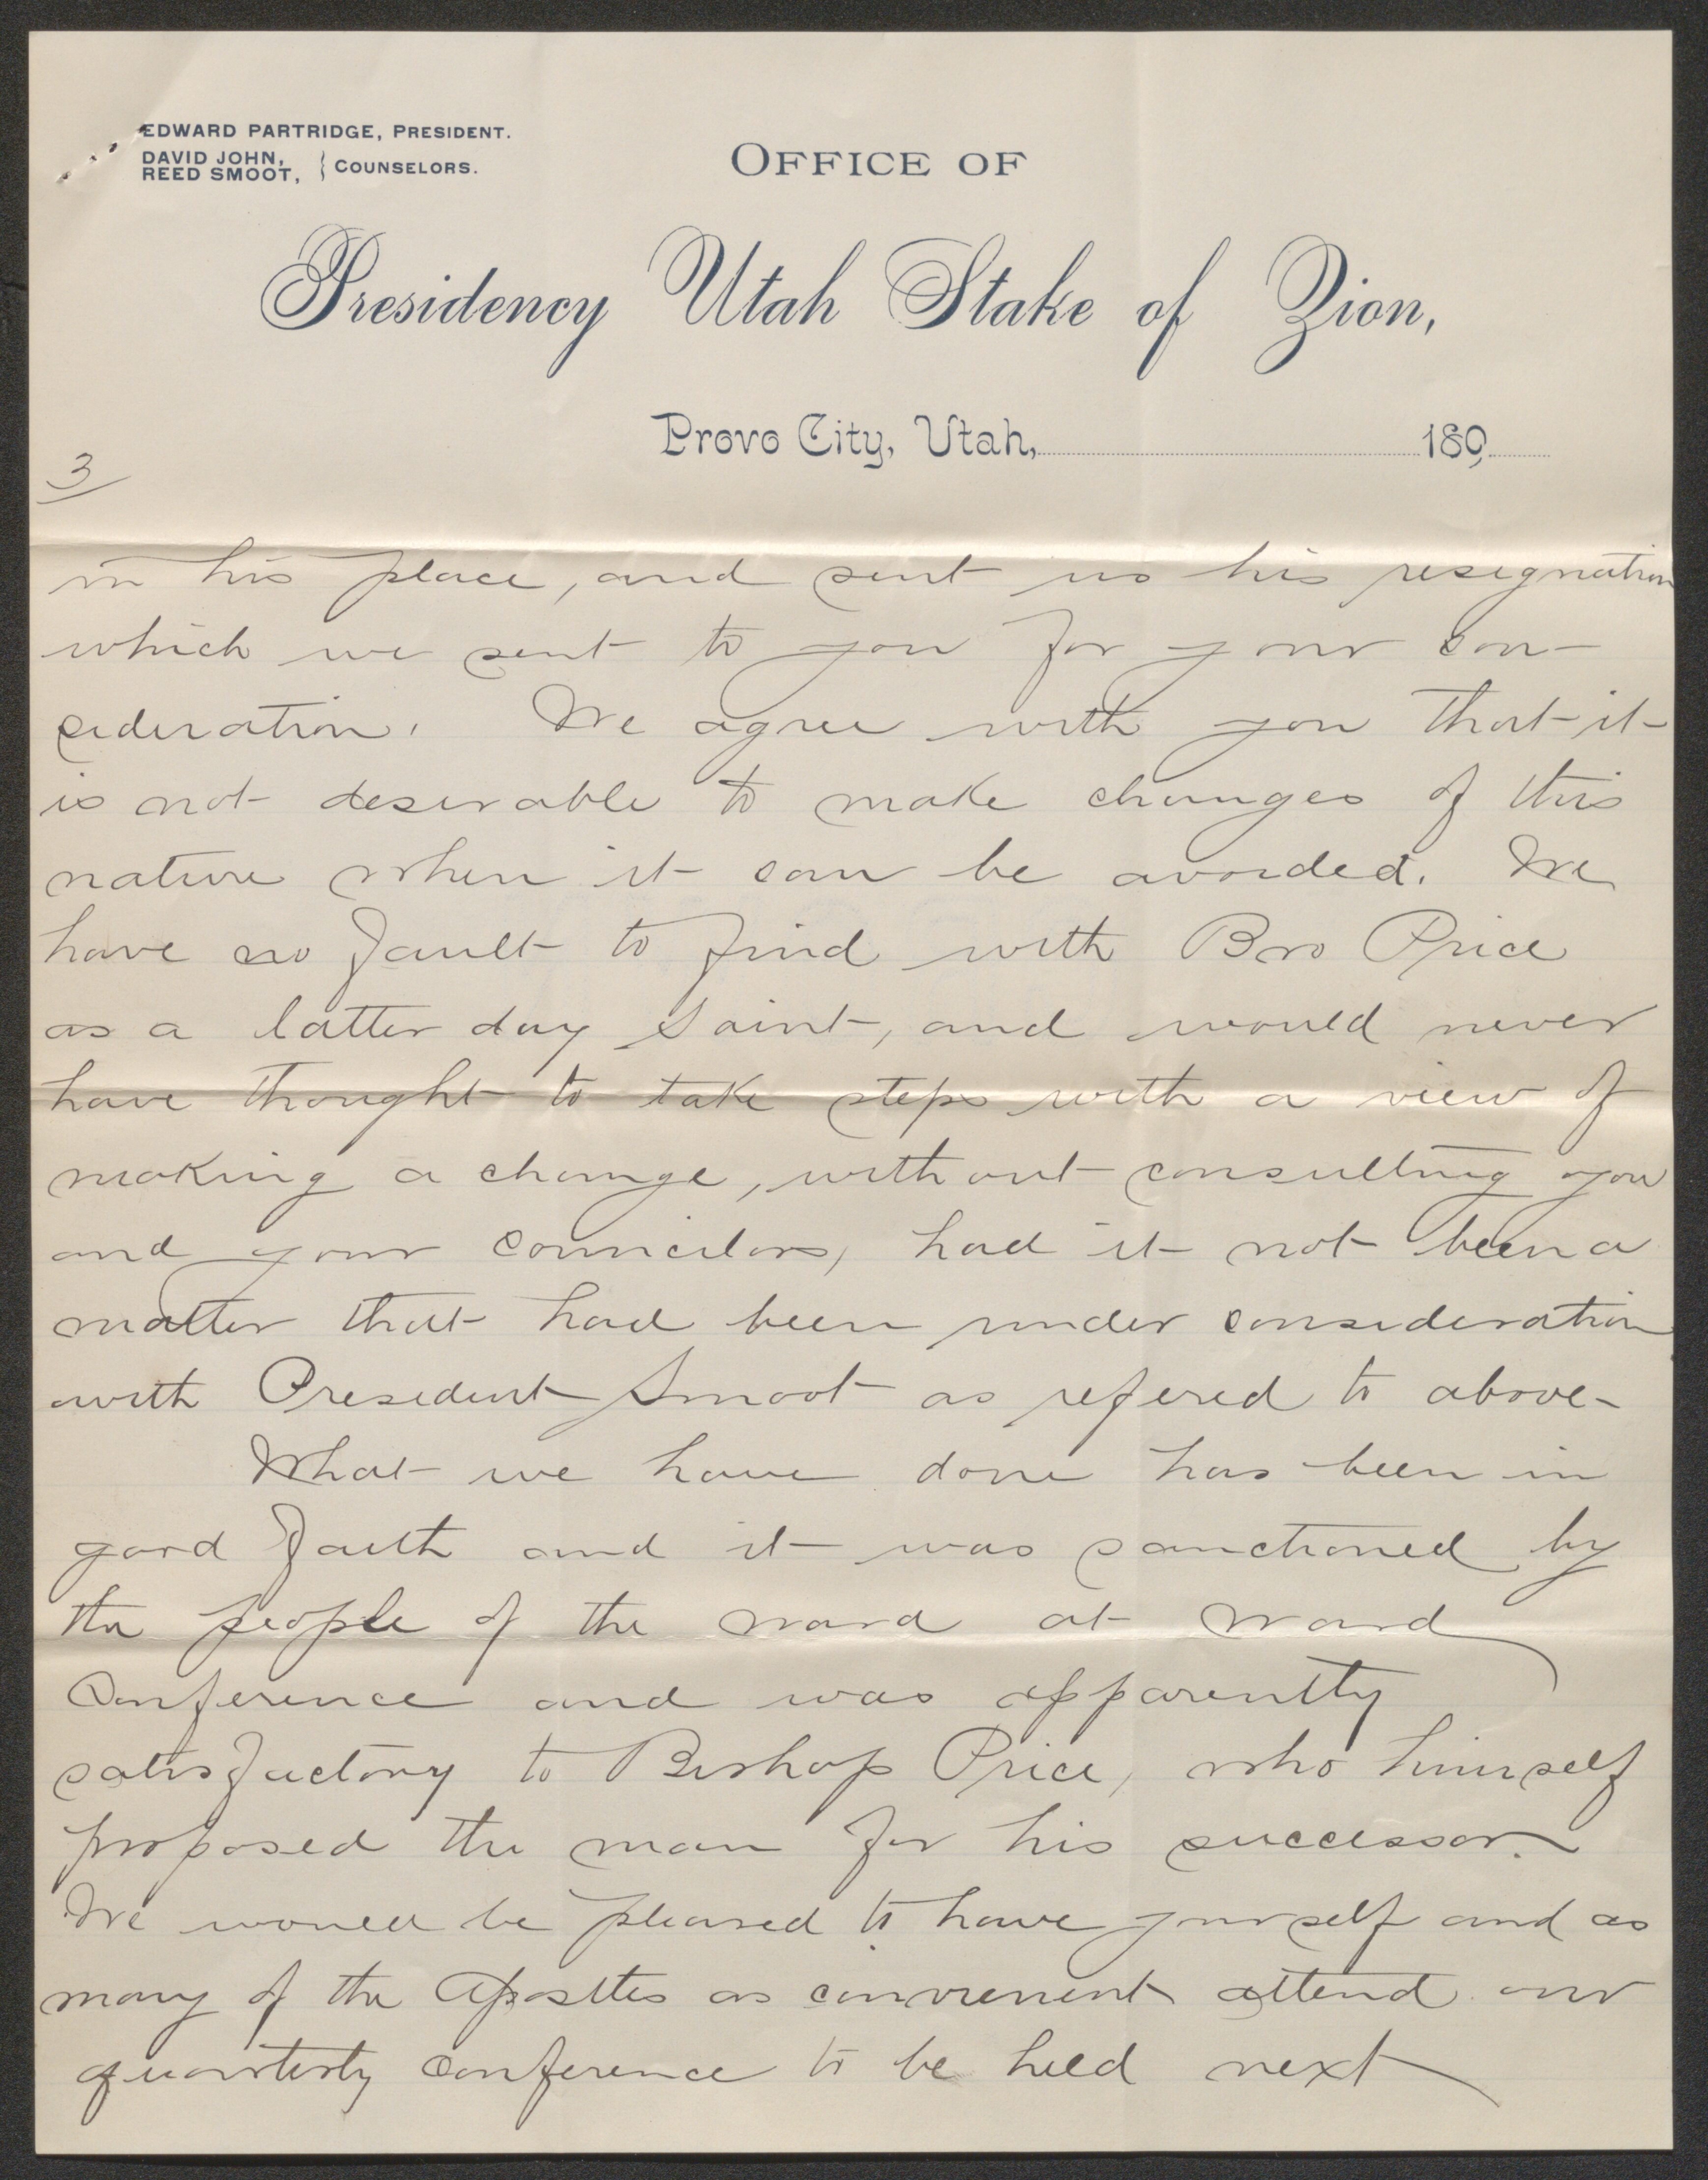 EDWARD PARTRIDGE, PRESIDENT.
DAVID JOHN,
REED SMOOT, } COUNSELORS.
OFFICE OF
Presidency Utah Stake of Zion,
Provo City, Utah, 189
3
in his place, and sent us his resignation
which we sent to you for your con-
sideration. We agree with you that it
is not desirable to make changes of this
nature when it can be avoided. We
have no fault to find with Bro Price
as a latter day Saint, and would never
have thought to take steps with a view of
making a change, without consulting you
and your councilors, had it not been a
matter that had been under consideration
with President Smoot as refered to above-
What we have done has been in
good faith and it was sanctioned by
the people of the ward at ward
Conference and was apparently
satisfactory to Bishop Price, who himself
proposed the man for his successor.
We would be pleased to have yourself and as
many of the Apostles as convenient attend our
quarterly Conference to be held next